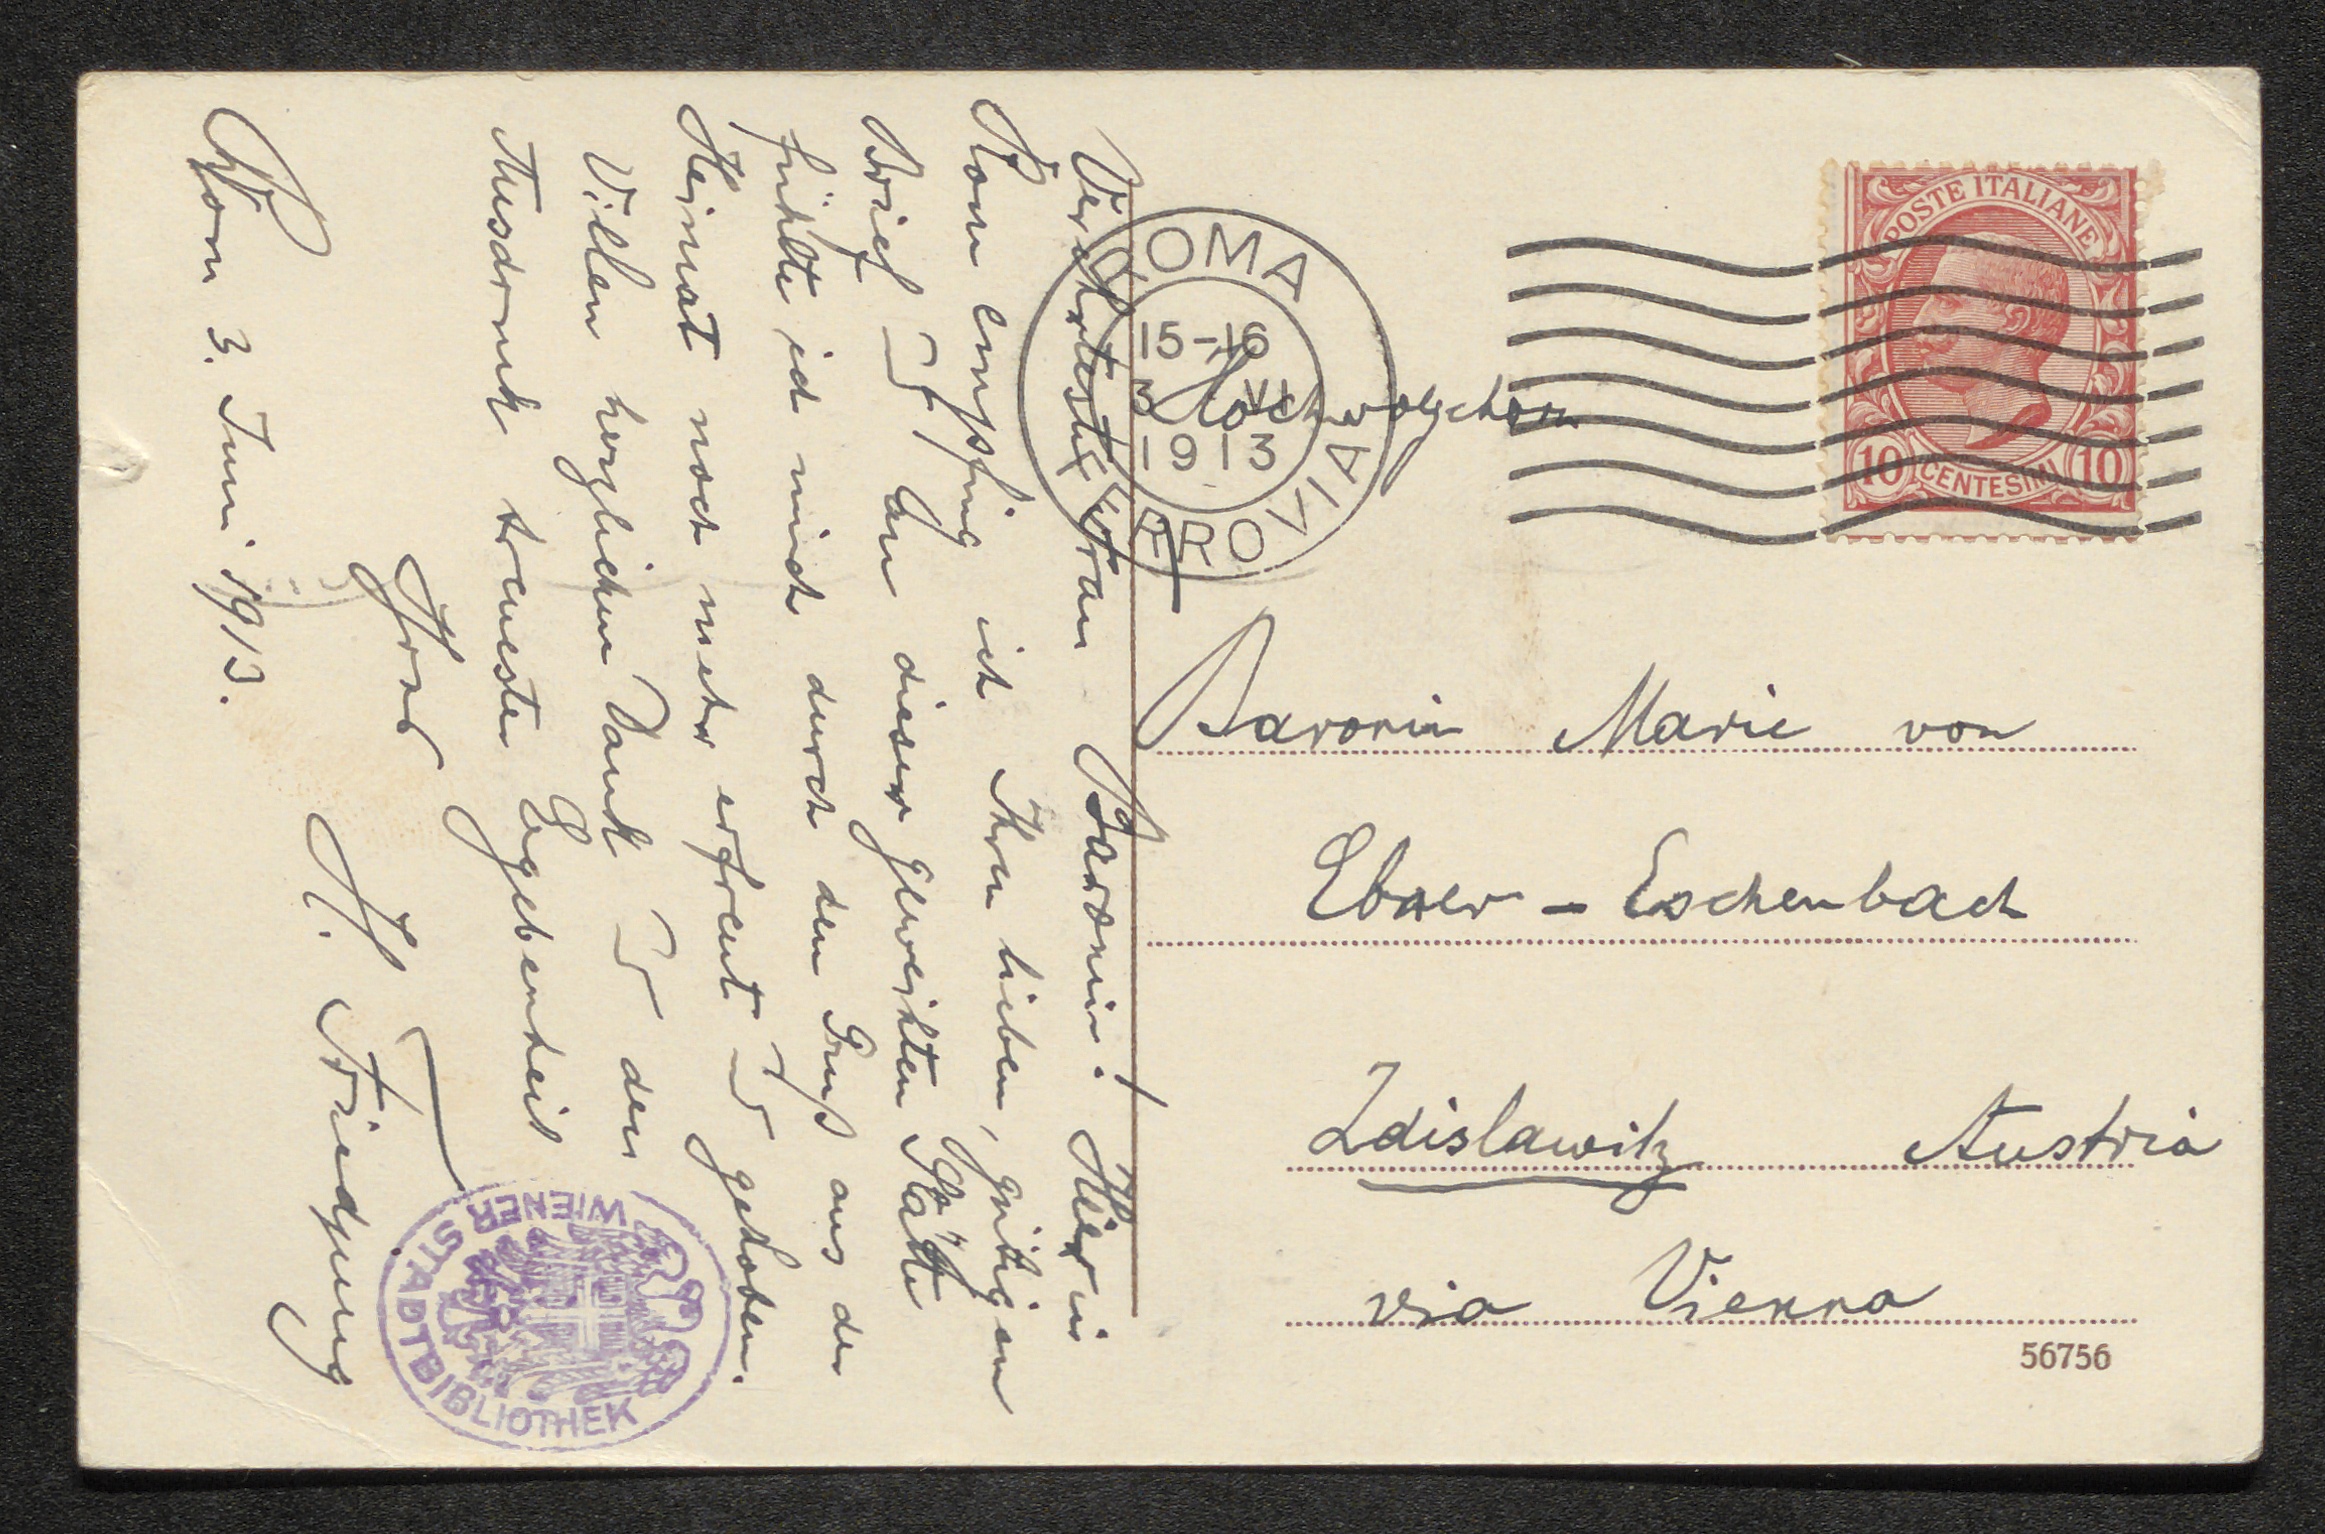 Verehrteste Frau Baronin! Hier in
Rom empfing ich Ihren lieben, gütigen
Brief u. an dieser geweihten Stätte
fühlte ich mich durch den Gruß aus der
Heimat noch mehr erfreut u. gehoben.
Vielen herzlichen Dank u. den
Ausdruck treuester Ergebenheit
Ihres
H. Friedjung
Rom 3. Juni 1913.
ROMA
15-16
3 VI
1913
FERROVIA
POSTE ITALIANE
10 CENTESIMI 10
Hochwolgeboren
Baronin Marie von
Ebner - Eschenbach
Zdislawitz Austria
via Vienna
56756
WIENER STADTBIBLIOTHEK